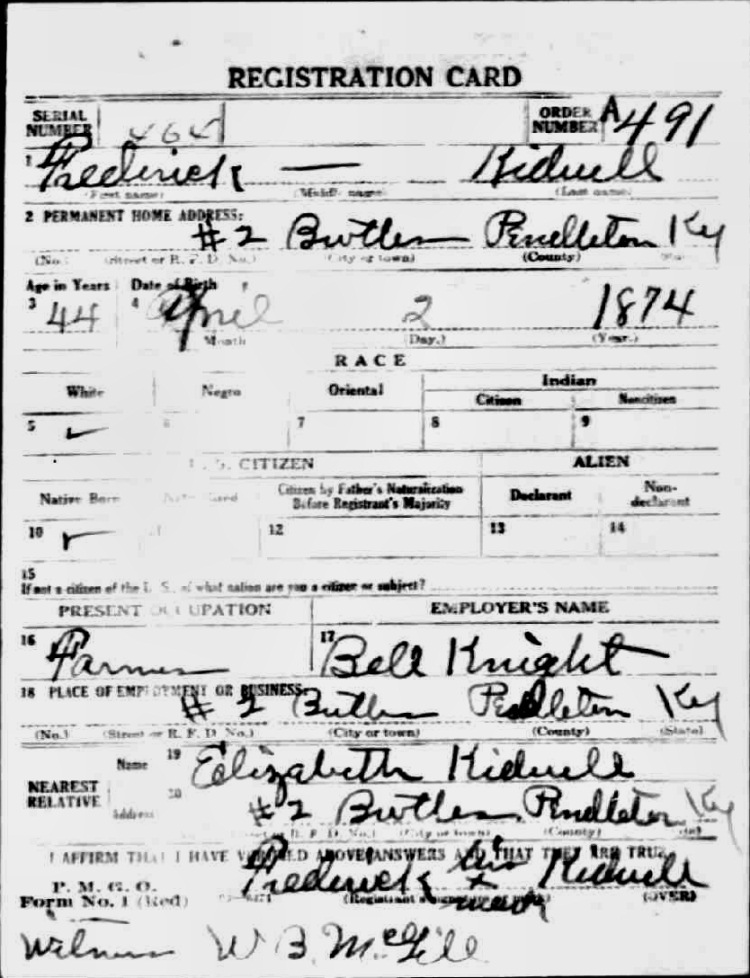 REGISTRATION CARD
SERIAL NUMBER 464 ORDER NUMBER A491
1 Frederick — Kidwell
(First name) (Middle name) (Last name)
2 PERMANENT HOME ADDRESS:
#2 Butler Pendleton Ky
(No.) (Street or R. F. D. No.) (City or town) (County)
Age in Years Date of Birth
3 44 4 April 2 1874
Month (Day.) (Year.)
RACE
White Negro Oriental Indian
Citizen Noncitizen
5 ✓ 6 7 8 9
U. S. CITIZEN ALIEN
Native Born Naturalized Citizen by Father's Naturalization Before Registrant's Majority Declarant Non-declarant
10 ✓ 12 13 14
15
If not a citizen of the U. S., of what nation are you a citizen or subject?
PRESENT OCCUPATION EMPLOYER'S NAME
16 Farmer 17 Bell Knight
18 PLACE OF EMPLOYMENT OR BUSINESS:
#2 Butler Pendleton Ky
(No.) (Street or R. F. D. No.) (City or town) (County) (State)
NEAREST RELATIVE Name 19 Elizabeth Kidwell
Address 20 #2 Butler Pendleton Ky
R. F. D. No.) (City or town) (County)
I AFFIRM THAT I HAVE VERIFIED ABOVE ANSWERS AND THAT THEY ARE TRUE
P. M. G. O.
Form No. 1 (Red) Frederick his x mark Kidwell
(Registrant's signature or mark) (OVER)
Witness W B McGill